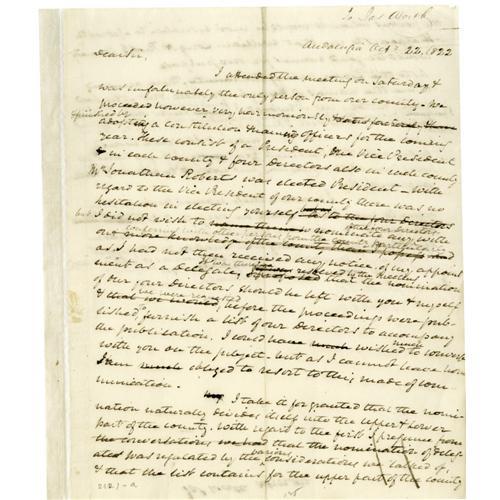 To Jas Worth
Andalusia Oct. 22, 1822
Dear Sir,
I attended the meeting on Saturday &
was unfortunately the only person from our county. We
proceeded however very harmoniously &
finished by
adopting a constitution & naming officers for the ensuing
year. These consist of a President, One Vice President
in each county & four Directors also in each county
Mr. Jonathan Roberts was elected President. With
regard to the Vice President of our county there was no
hesitation in electing yourself as to the four Directors
but I did not wish to nominate any with
out more knowledge of the
as I had not then received any notice of my appoint
ment as a Delegate, that the nomination
of our four Directors should be left with you & myself
& that before the proceedings were pub
lished, furnish a list of our Directors to accompany
the publication. I could have much wished to converse
with you on the subject. but as I cannot leave home
I am obliged to resort to this mode of com
munication.
I take it for granted that the nomi
nation naturally divides itself into the upper & lower
part of the county. With regard to the first I presume from
the conversations we had that the nomination of deleg
ates was regulated by the various considerations we talked of,
& that the list contains for the upper part of the county